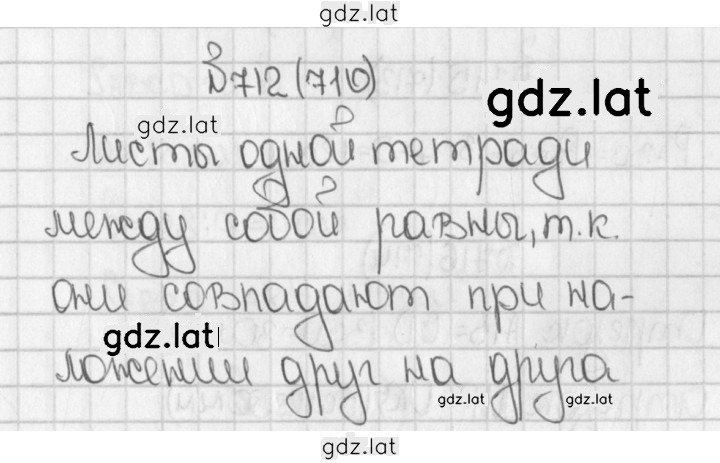 gdz.lat
№712(710)
gdz.lat
gdz.lat
Листы одной тетради
между собой равны, т.к.
они совпадают при на-
gdz.lat
ложении друг на друга
gdz.lat
gdz.lat
gdz.lat